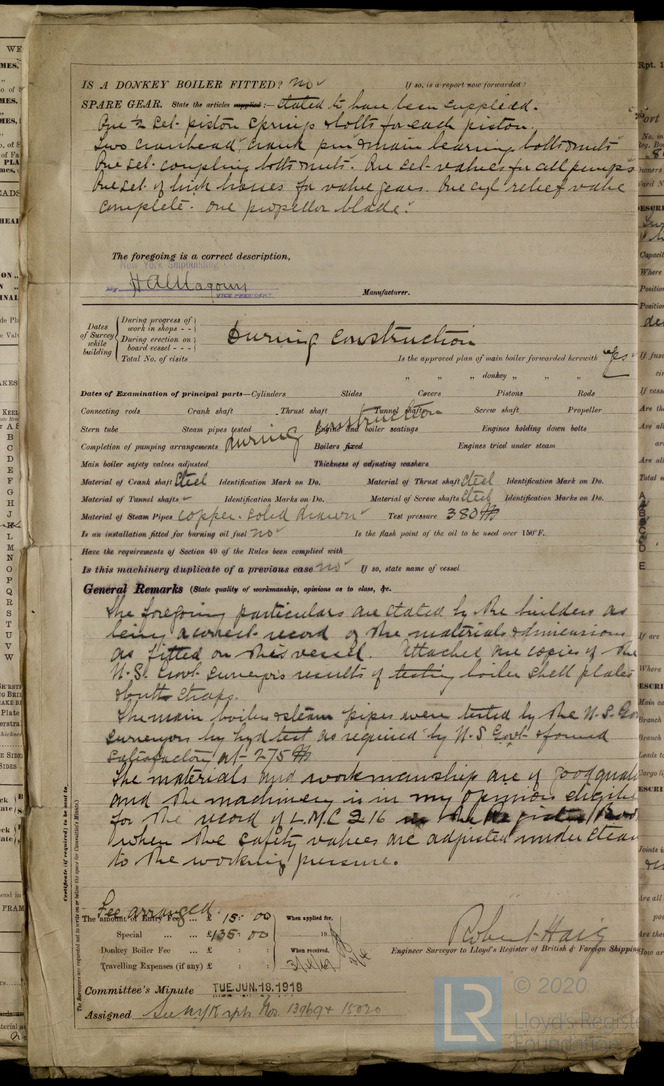 IS A DONKEY BOILER FITTED? no If so, is a report now forwarded?
SPARE GEAR. State the articles supplied:— stated to have been supplied.
One set piston springs & bolts for each piston.
Two crosshead, crank pin & main bearing bolts & nuts
One set coupling bolts & nuts. One set valves for all pumps
One set of link brasses for valve gears. One cyl relief valve
complete. One propeller blade.
The foregoing is a correct description,
New York Shipbuilding
By H A Magoun VICE PRESIDENT Manufacturer.
Dates of Survey while building
During progress of work in shops - -
During erection on board vessel - - -
Total No. of visits
During Construction
Is the approved plan of main boiler forwarded herewith yes
" " donkey " " "
Dates of Examination of principal parts—Cylinders Slides Covers Pistons Rods
Connecting rods Crank shaft Thrust shaft Tunnel shafts Screw shaft Propeller
Stern tube Steam pipes tested Engine and boiler seatings Engines holding down bolts
during construction
Completion of pumping arrangements Boilers fixed Engines tried under steam
Main boiler safety valves adjusted Thickness of adjusting washers
Material of Crank shaft Steel Identification Mark on Do. Material of Thrust shaft Steel Identification Mark on Do.
Material of Tunnel shafts Identification Marks on Do. Material of Screw shafts Steel Identification Marks on Do.
Material of Steam Pipes copper. solid drawn Test pressure 380 lb
Is an installation fitted for burning oil fuel no Is the flash point of the oil to be used over 150°F.
Have the requirements of Section 49 of the Rules been complied with
Is this machinery duplicate of a previous case no If so, state name of vessel
General Remarks (State quality of workmanship, opinions as to class, &c.
The foregoing particulars are stated by the builders as
being a correct record of the materials & dimensions
as fitted on this vessel. Attached are copies of the
U.S. Govt. Surveyors results of testing boiler shell plates
& butt straps.
The main boilers & steam pipes were tested by the U.S. Gov
surveyors by hyd test as required by U.S Govt & found
satisfactory at 275 lb
The materials and workmanship are of good qual
and the machinery is in my opinion eligible
for the record of L.M.C 2.16 in the Register Book
when the safety valves are adjusted under steam
to the working pressure.
Certificate (if required) to be sent to
(The Surveyors are requested not to write on or below the space for Committee's Minute.)
Fee arranged.
The amount of Entry Fee ... £ 15 : 00 When applied for,
Special ... £ 135 : 00 19
Donkey Boiler Fee ... £ : : When received,
Travelling Expenses (if any) £ : :
Robert Haig
Engineer Surveyor to Lloyd's Register of British & Foreign Shipping
Committee's Minute TUE. JUN. 18. 1918
Assigned See N.Y.K rpts Nos. 13969 & 15020
LR
© 2020
Lloyd's Register
Foundation